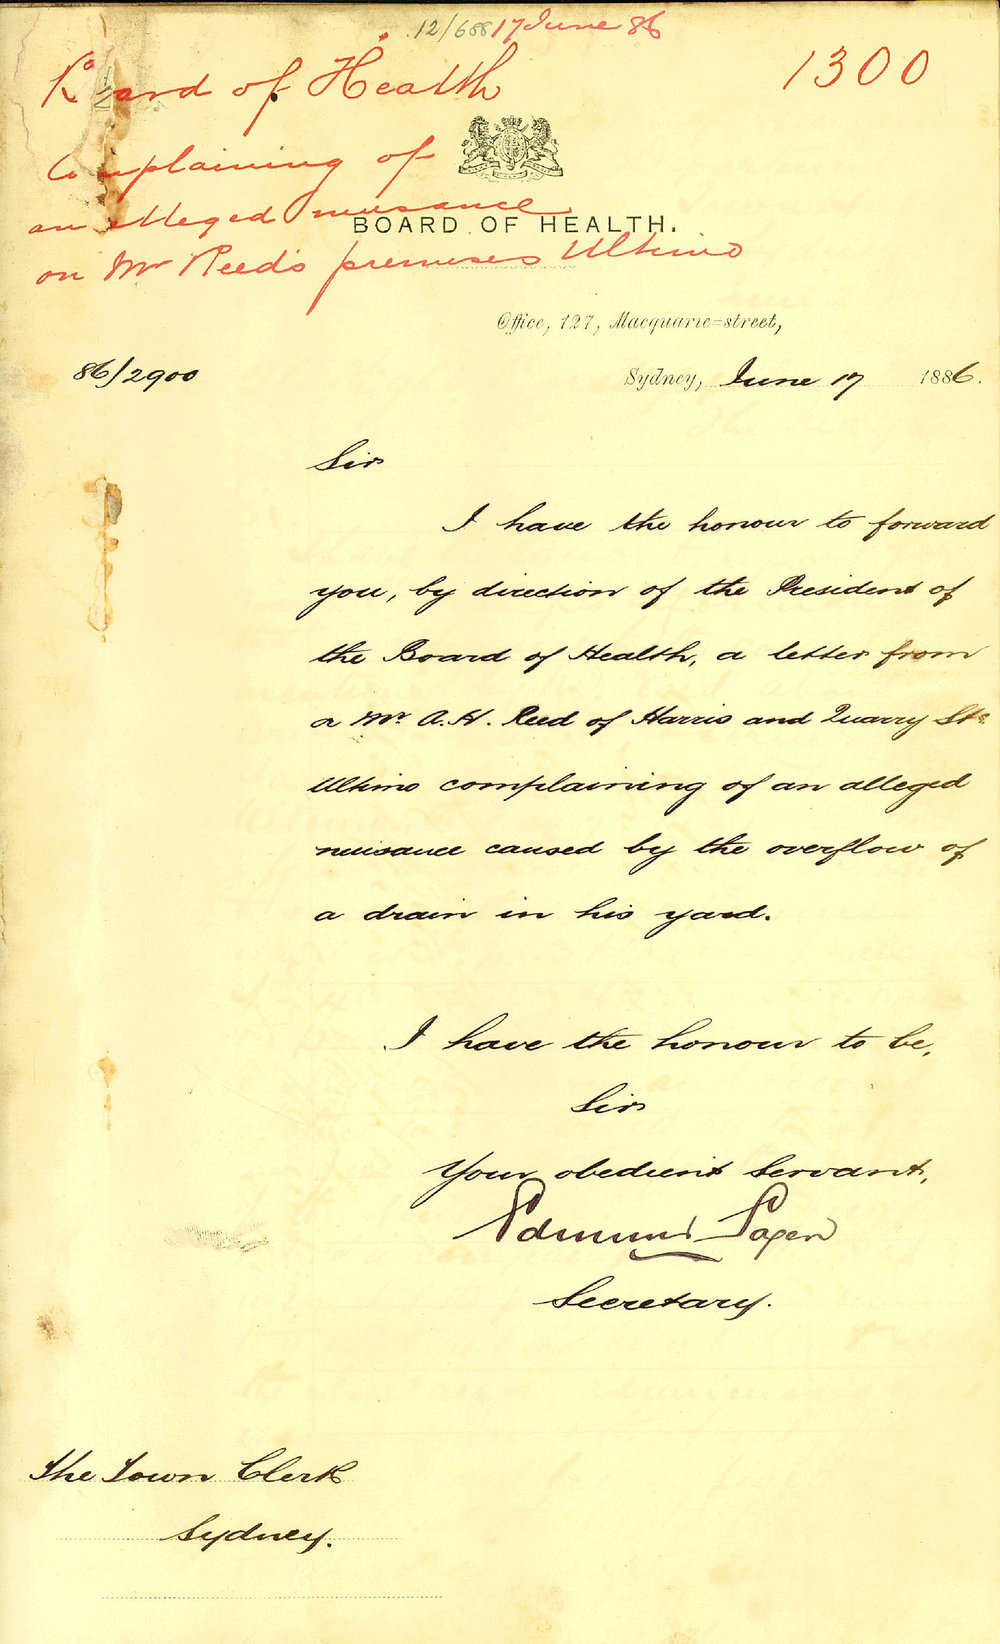 12/688 17 June 86
1300
Board of Health
Complaining of
an alleged nuisance
on Mr Reed's premises Ultimo
BOARD OF HEALTH.
Office, 127, Macquarie=street,
86/2900
Sydney, June 17 1886.
Sir
I have the honour to forward
you, by direction of the President of
the Board of Health, a letter from
a Mr. A. H. Reed of Harris and Quarry Sts.
Ultimo complaining of an alleged
nuisance caused by the overflow of
a drain in his yard.
I have the honour to be,
Sir
Your obedient Servant,
Edmund Sager
Secretary.
The Town Clerk
Sydney.